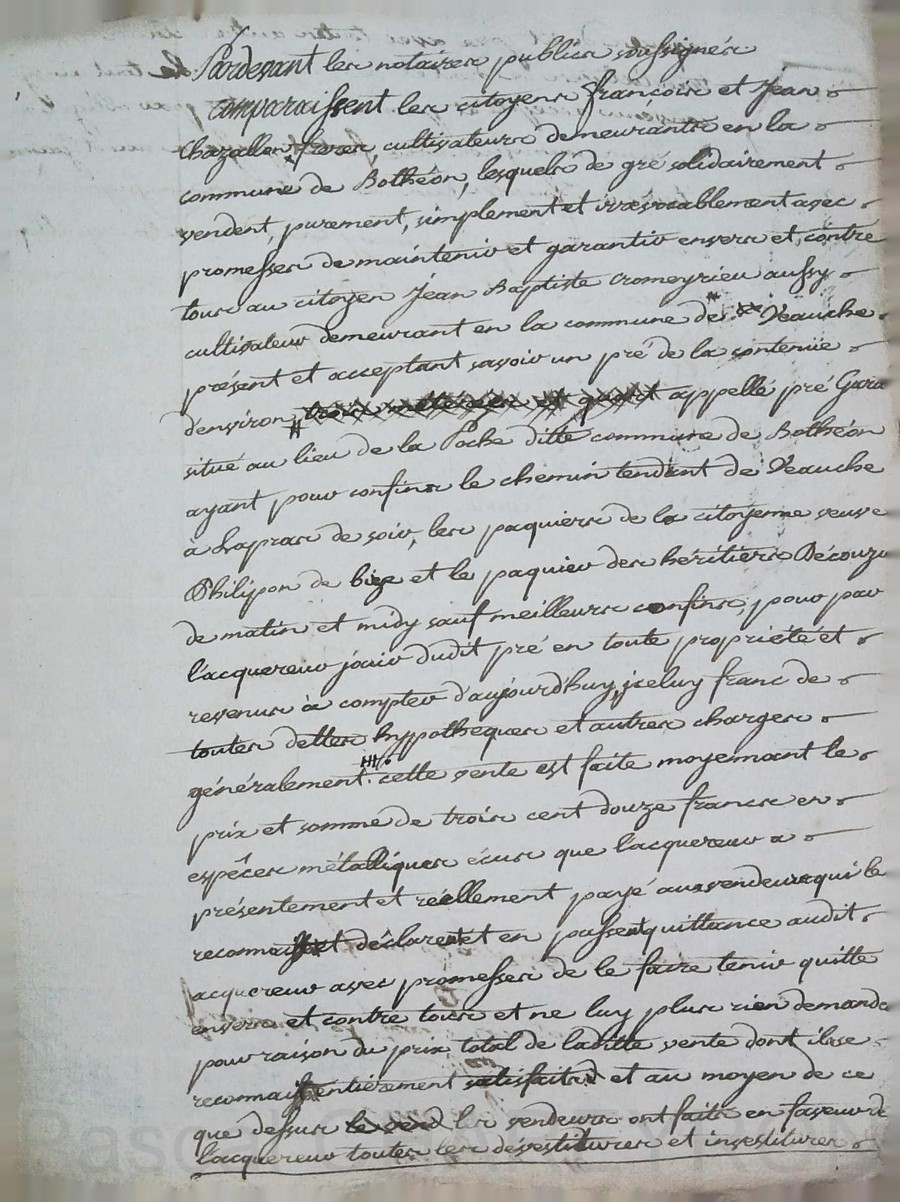 Pardevant les notaires publics soussignés
comparaissent les citoyens françois et Jean
Chazallon freres cultivateurs demeurants en la
commune de Bothéon, lesquels de gré solidairement
vendent, purement, simplement et irrévocablement avec
promesses de maintenir et garantir envers et contre
tous au citoyen Jean Baptiste cromeyrieu aussy
cultivateur demeurant en la commune de Veauche
présent et acceptant savoir un pré de la contenüe
d'environ appellé pré Gara
situé au lieu de la Poche ditte commune de Bothéon
ayant pour confins le chemin tendant de Veauche
a de soir, les paquiers de la citoyenne veuve
Philipon de bize et le paquier des héritiers Découzu
de matin et midy sauf meilleurs confins, pour par
l'acquereur jouir dudit pré en toute propriété et
revenus à compter d'aujourd'huy, jceluy franc de
toutes dettes hyppotheques et autres charges
généralement. cette vente est faite moyennant le
prix et somme de trois cent douze francs en
espêces métalliques écus que l'acquereur a
présentement et réellement payé aux vendeurs qui le
reconnaissent déclarent et en passent quittance audit
acquereur avec promesses de le faire tenir quitte
envers et contre tous et ne luy plus rien demander
pour raison du prix total de laditte vente dont ils se
reconnaissent entièrement satisfaits et au moyen de ce
que dessus le vend les vendeurs ont faits en faveur de
l'acquereur toutes les dévestitures et investitures